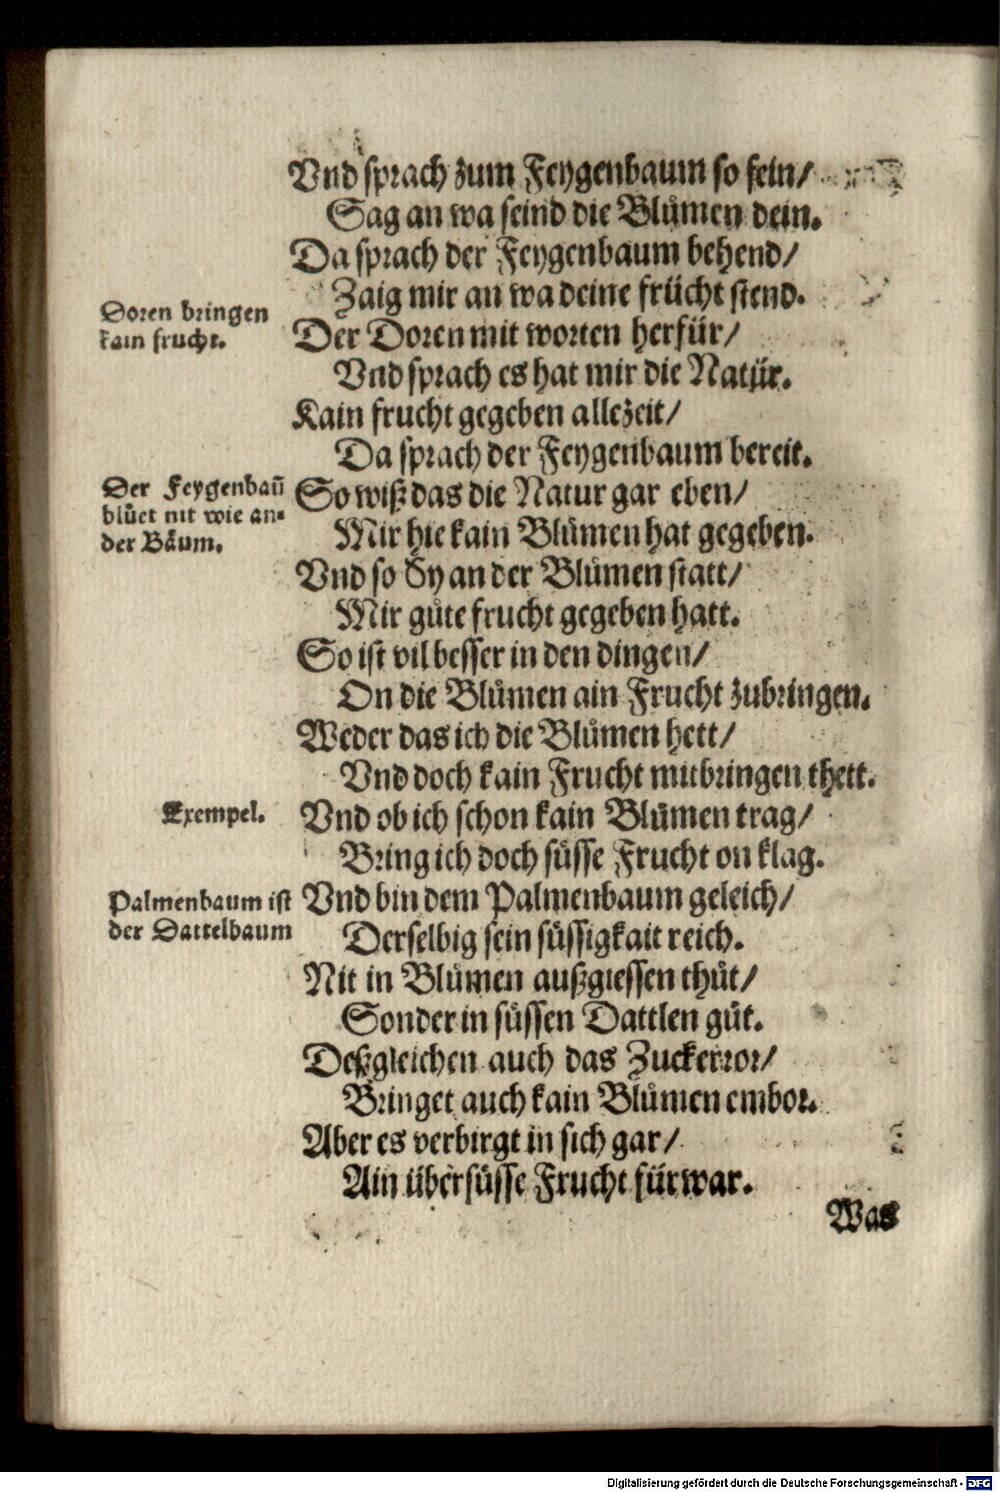 Vnd sprach zum Feygenbaum so fein/
Sag an wa seind die Blůmen dein.
Da sprach der Feygenbaum behend/
Zaig mir an wa deine frücht stend.
Doren bringen
kain frucht.
Der Doren mit worten herfür/
Vnd sprach es hat mir die Natür.
Kain frucht gegeben allezeit/
Da sprach der Feygenbaum bereit.
Der Feygenbaū
blůet nit wie an⸗
der Bäum.
So wiß das die Natur gar eben/
Mir hie kain Blůmen hat gegeben.
Vnd so Sy an der Blůmen statt/
Mir gůte frucht gegeben hatt.
So ist vil besser in den dingen/
On die Blůmen ain Frucht zubringen.
Weder das ich die Blůmen hett/
Vnd doch kain Frucht mitbringen thett.
Exempel.
Vnd ob ich schon kain Blůmen trag/
Bring ich doch süsse Frucht on klag.
Palmenbaum ist
der Dattelbaum
Vnd bin dem Palmenbaum geleich/
Derselbig sein süssigkait reich.
Nit in Blůmen außgiessen thůt/
Sonder in süssen Dattlen gůt.
Deßgleichen auch das Zuckerror/
Bringet auch kain Blůmen embor.
Aber es verbirgt in sich gar/
Ain übersüsse Frucht fürwar.
Was
Digitalisierung gefördert durch die Deutsche Forschungsgemeinschaft - DFG